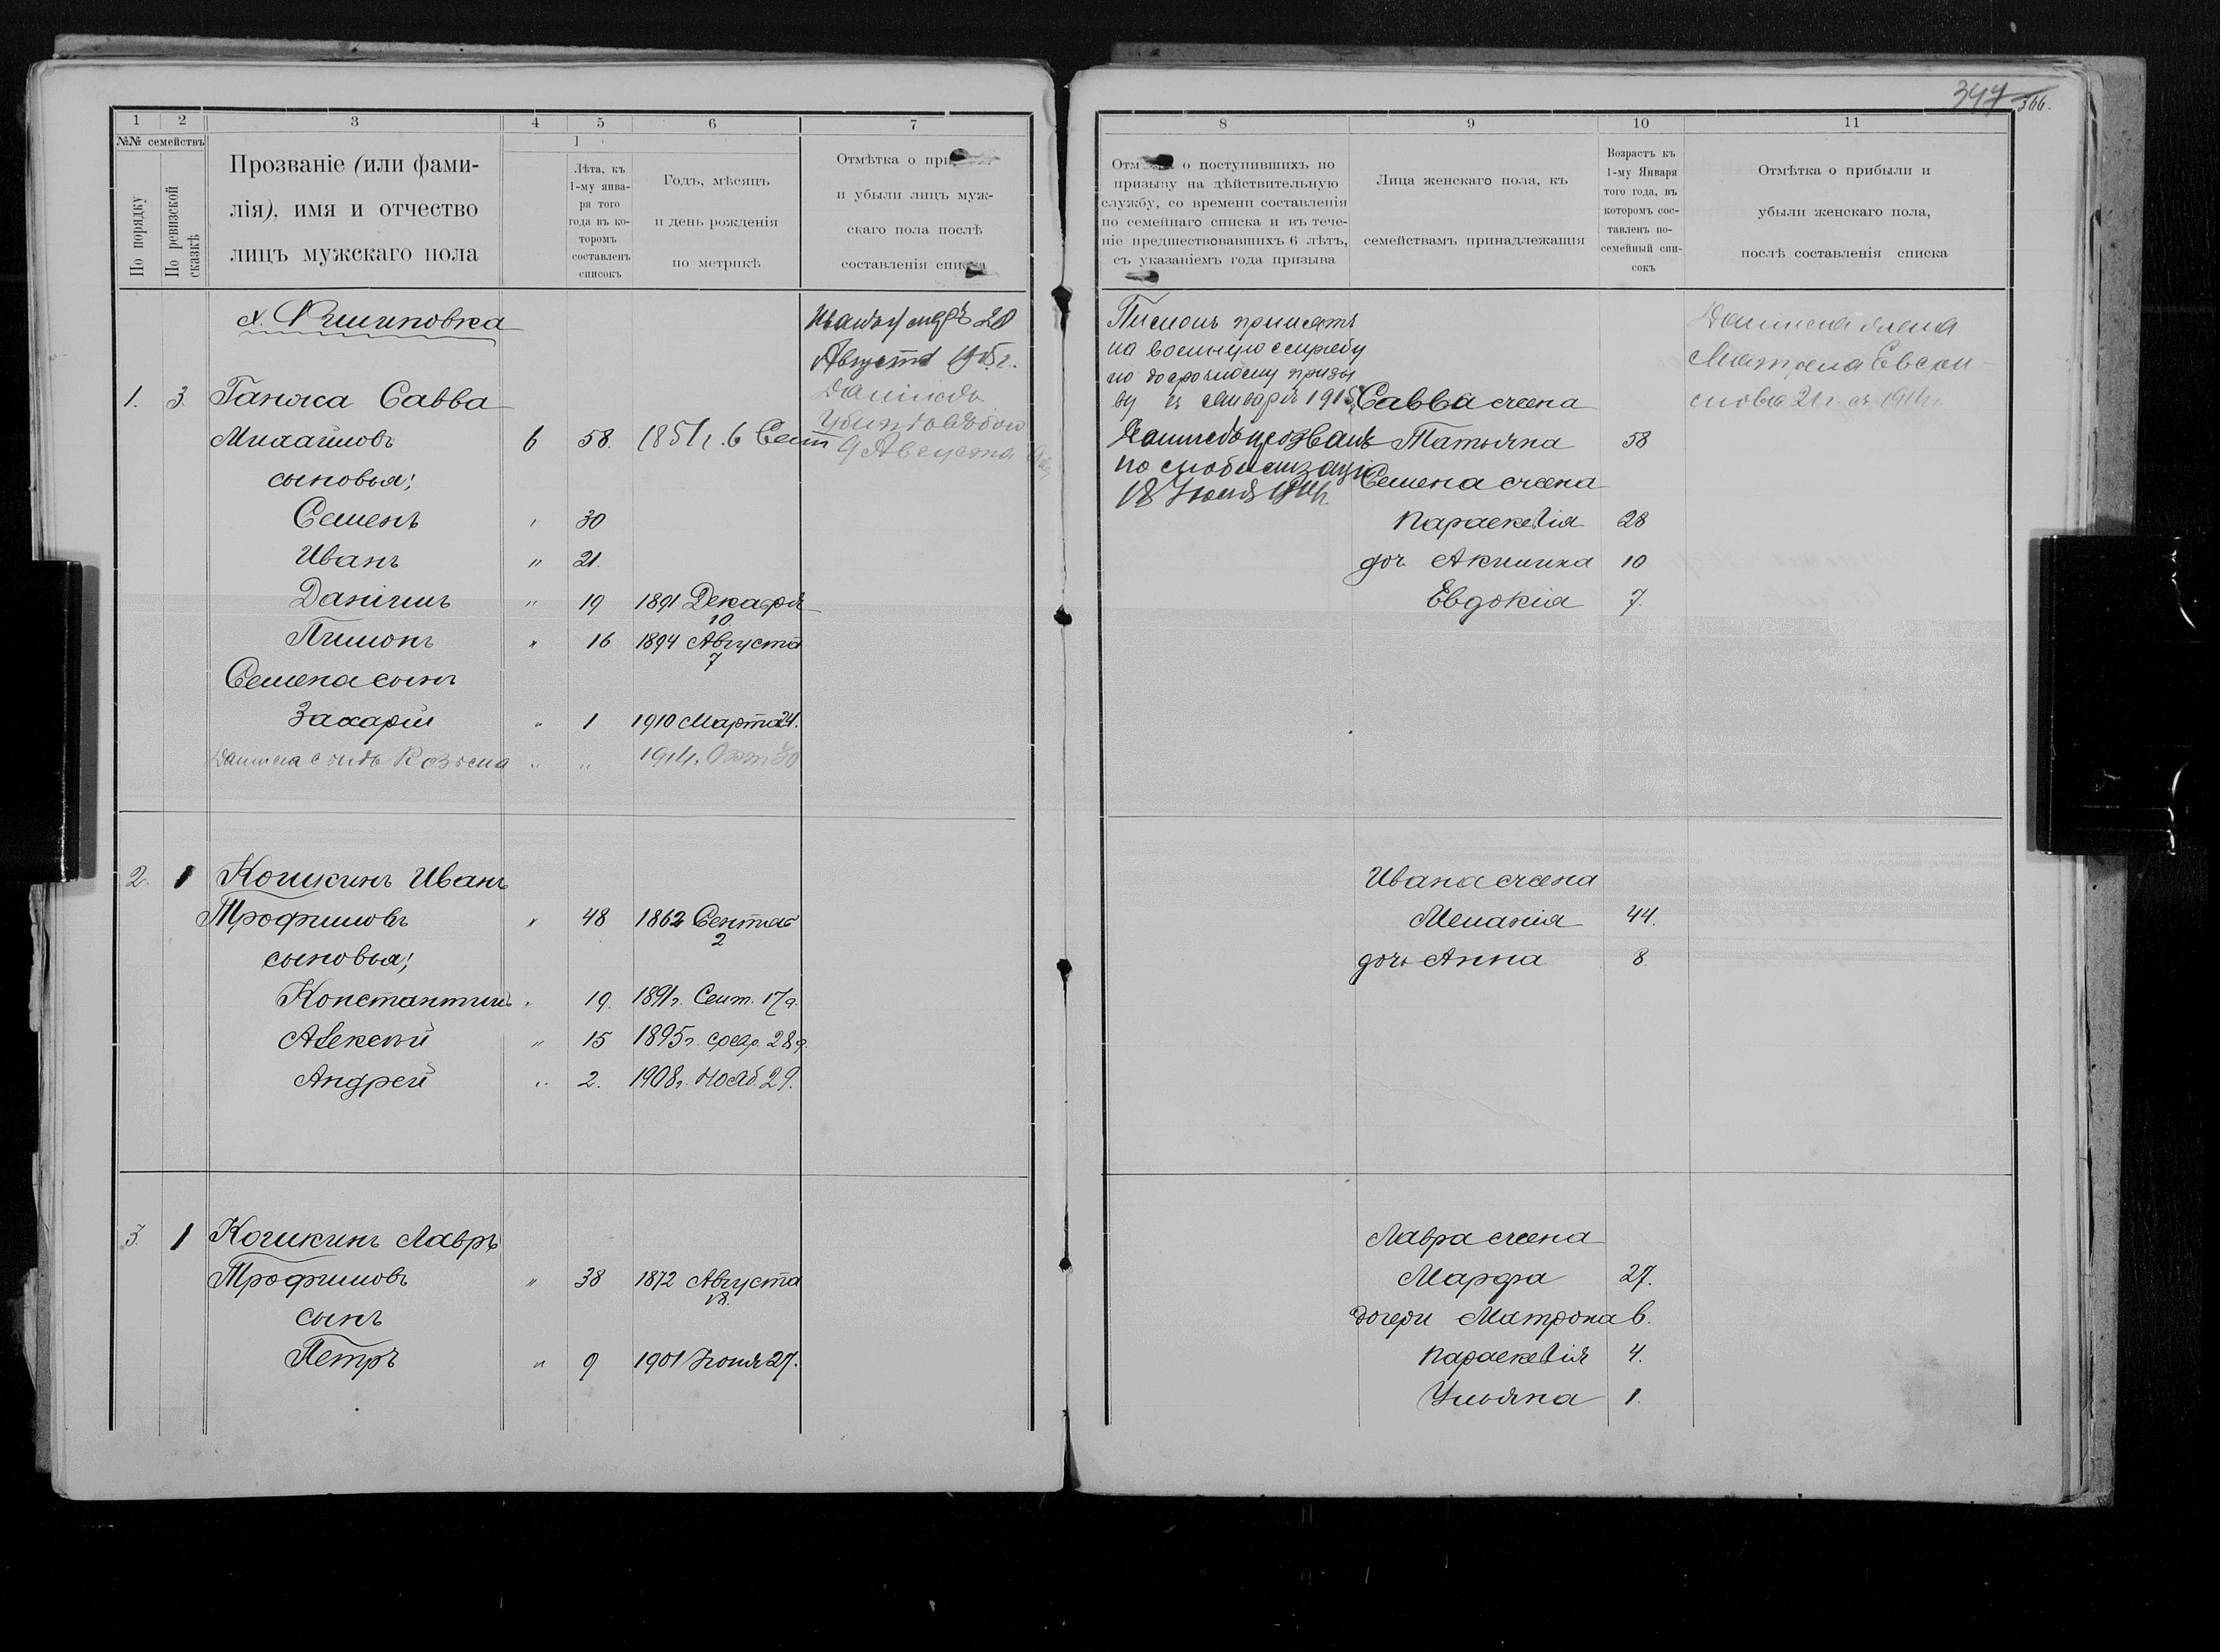 344 366.
1 2 3 4 5 6 7
№№ семействъ
По порядку
По ревизской сказкѣ
Прозваніе (или фами-
лія), имя и отчество
лицъ мужскаго пола
Лѣта, къ
1-му янва-
ря того
года въ ко-
торомъ
составленъ
списокъ
Годъ, мѣсяцъ
и день рожденія
по метрикѣ
Отмѣтка о
и убыли лицъ муж-
скаго пола послѣ
составленія списка
х.
Августа
1. 3. Ганжа Савва
Михайловъ 6 58. 1851 г. 6 Сент
сыновья;
Семенъ " 30
Иванъ " 21.
Даніилъ " 19 1891 Декабря
10.
Пимонъ " 16 1894 Августа
7
Семена сынъ
Захарій " 1 1910 Марта 24.
Данила сынъ Козьма " " 1914. Окт 30
Данилъ
9 Августа
2. 1 Кошкинъ Иванъ
Трофимовъ " 48 1862 Сентяб
2
сыновья;
Константинъ " 19. 1891 г. Сент. 17 д.
Алексѣй " 15 1895 г. февр. 28 д.
Андрей " 2. 1908 г. Нояб. 29.
3. 1 Кошкинъ Лавръ
Трофимовъ " 38 1872 Августа
18.
сынъ
Петръ " 9 1901 Іюня 27.
8 9 10 11
о поступившихъ по
призыву на дѣйствительную
службу, со времени составленія
по семейнаго списка и въ тече-
ніе предшествовавшихъ 6 лѣтъ,
съ указаніемъ года призыва
Лица женскаго пола, къ
семействамъ принадлежащія
Возрастъ къ
1-му Января
того года, въ
которомъ сос-
тавленъ по-
семейный спи-
сокъ
Отмѣтка о прибыли и
убыли женскаго пола,
послѣ составленія списка
Пимонъ принятъ
на военную службу
по досрочному призы
ву въ Январѣ 1915 г.
Данилъ призванъ
по мобилизаціи
18 Іюля 1914 г.
Данила жена
Матрена Евсти
21 г. съ 1914 г.
Савва жена
Татьяна 58
Семена жена
Параскевія 28
доч. Акилина 10
Евдокія 7.
Ивана жена
Меланія 44.
дочь Анна 8.
Лавра жена
Марфа 27.
дочери Матрона 6.
Параскевія 4.
Ульяна 1.